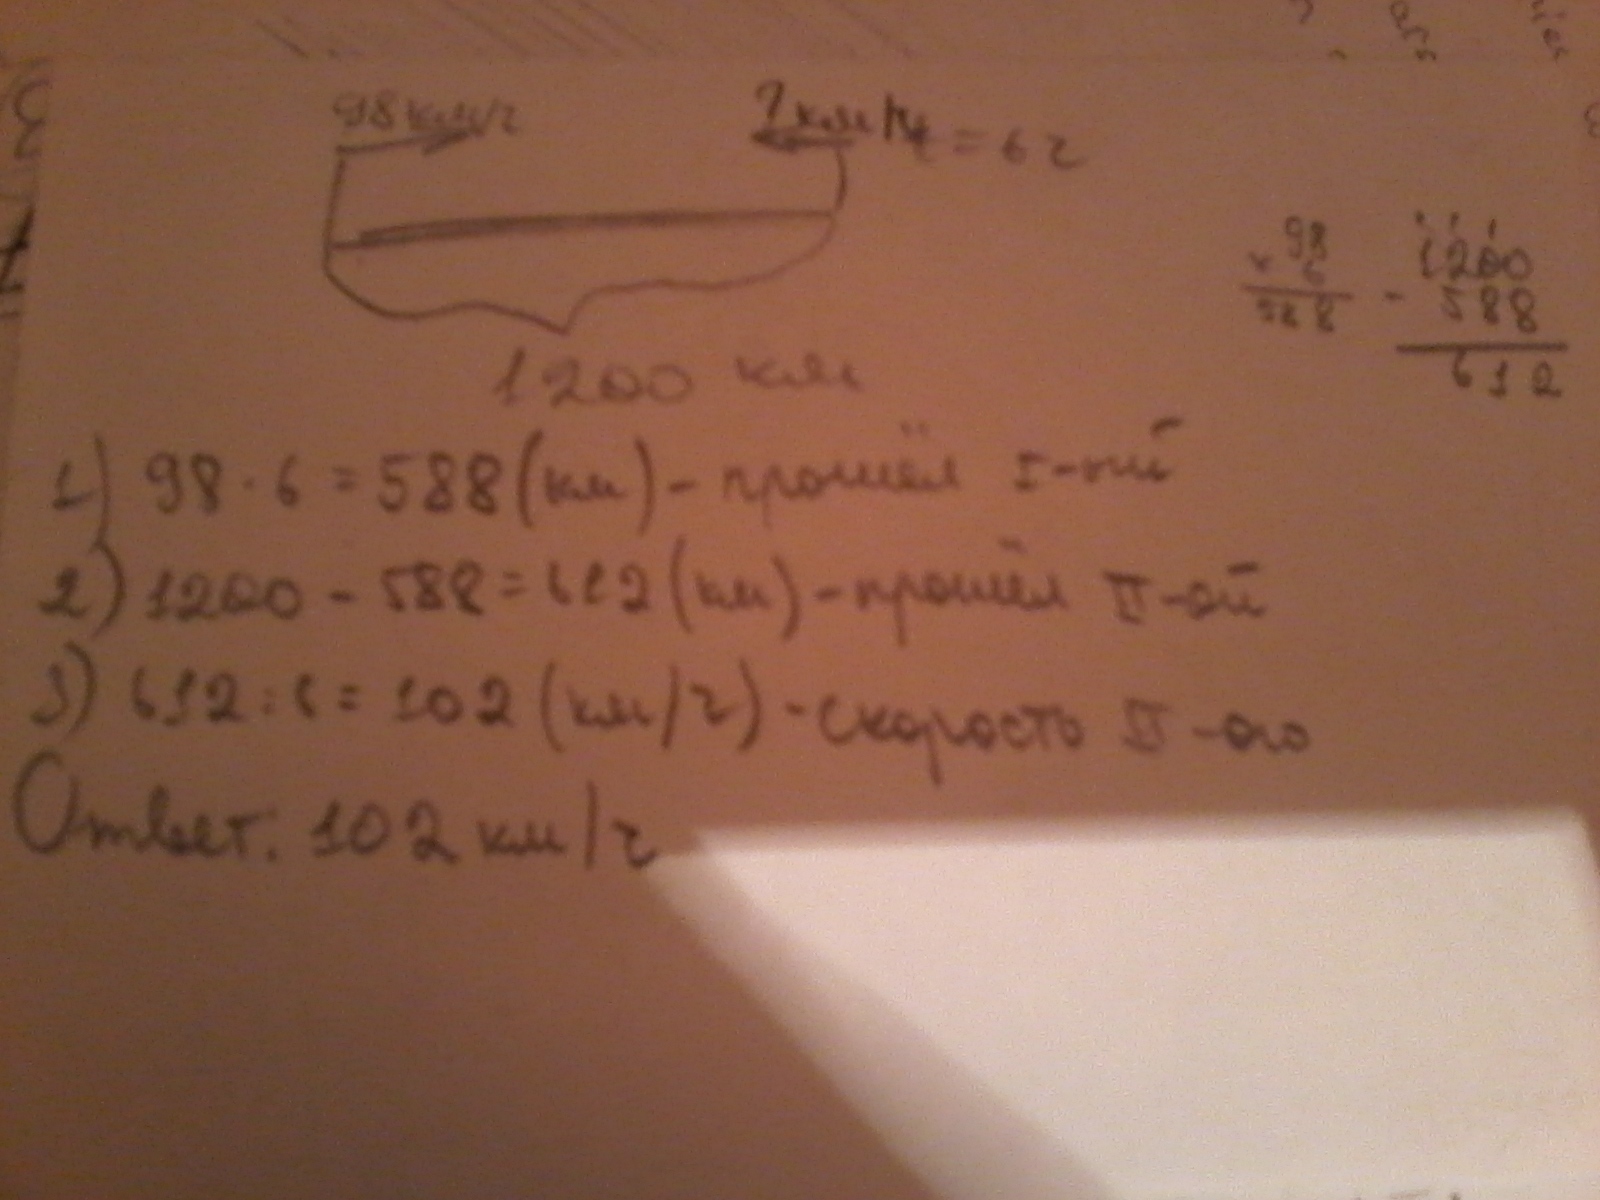 98 км/ч
? км/ч t = 6 ч
1200 км
98
× 6
588
1200
- 588
612
1) 98 · 6 = 588 (км) - прошёл I-ый
2) 1200 - 588 = 612 (км) - прошёл II-ой
3) 612 : 6 = 102 (км/ч) - скорость II-ого
Ответ: 102 км/ч